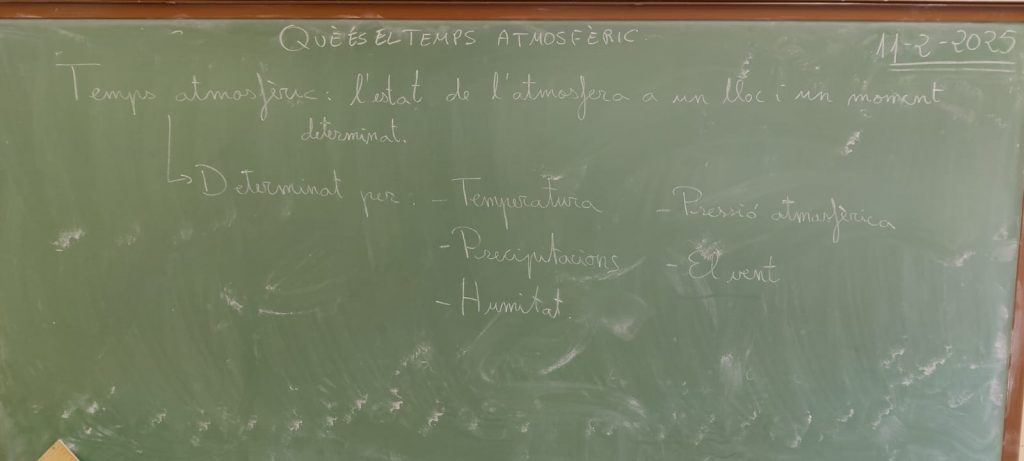 QUÈ ÉS EL TEMPS ATMOSFÈRIC
11-2-2025
Temps atmosfèric: l'estat de l'atmosfera a un lloc i un moment
determinat.
Determinat per: - Temperatura
- Precipitacions
- Humitat.
- Pressió atmosfèrica
- El vent